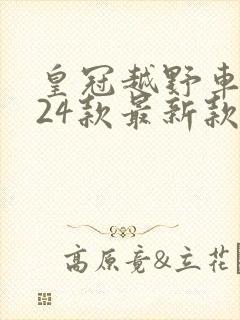 皇冠越野車
24款最新款
高原竟&立花